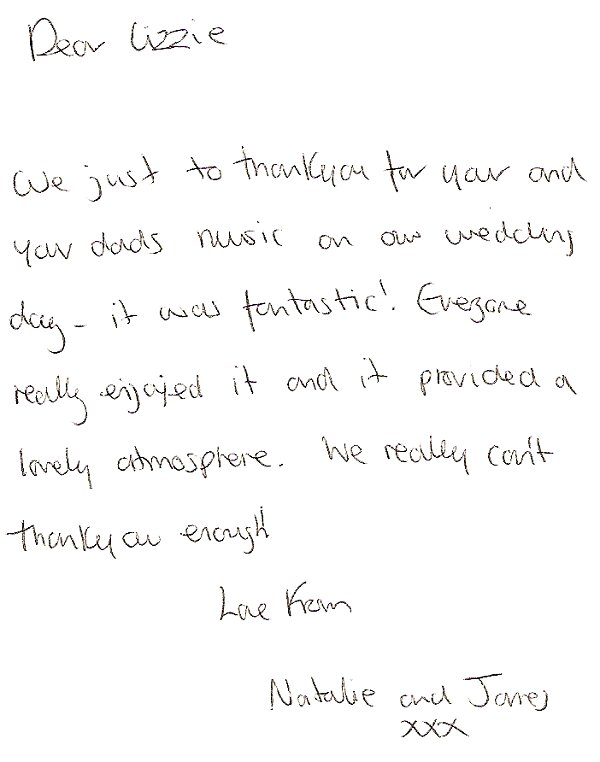 Dear Lizzie
We just to thankyou for your and
your dads music on our wedding
day - it was fantastic! Everyone
really enjoyed it and it provided a
lovely atmosphere. We really can't
thankyou enough!
Love From
Natalie and James
xxx